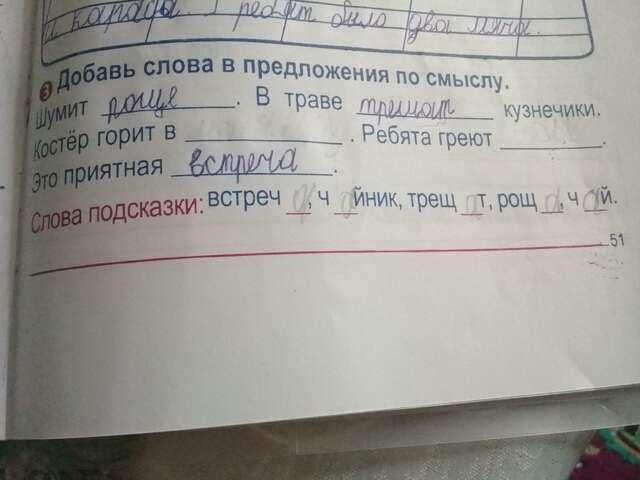 и карады. У ребят было два мяча.
3 Добавь слова в предложения по смыслу.
Шумит роще. В траве трещат кузнечики.
Костёр горит в ____. Ребята греют ____.
Это приятная встреча.
Слова подсказки: встреч а, ч айник, трещ ат, рощ а, ч ай.
51